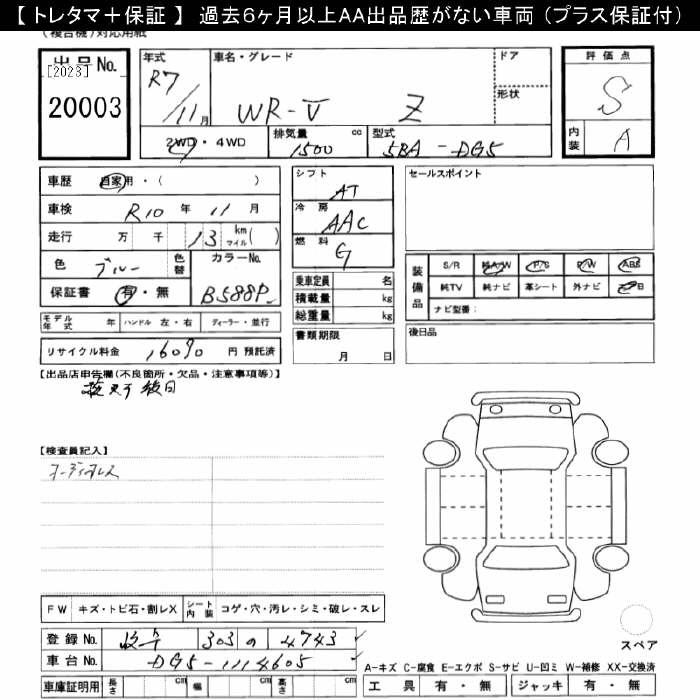 【 トレタマ＋保証 】 過去6ヶ月以上AA出品歴がない車両 (プラス保証付)
(複合機)対応用紙
出品No. [2023] 20003
年式 R7/11月
車名・グレード WR-V Z
ドア
形状
評価点 S
内装 A
2WD・4WD
排気量 1500 cc
型式 5BA-DG5
車歴 自家用・( )
車検 R10年 11月
走行 万 千 13 km マイル( )
色 ブルー 色替
カラーNo. B588P
保証書 有・無
シフト AT
冷房 AAC
燃料 G
乗車定員 名
積載量 kg
総重量 kg
書類期限 月 日
セールスポイント
装備品 S/R 純A/W P/S P/W ABS
純TV 純ナビ 革シート 外ナビ B
ナビ型番:
後日品
モデル年式 年 ハンドル 左・右 ディーラー・並行
リサイクル料金 16090 円 預託済
【出品店申告欄(不良箇所・欠品・注意事項等)】
後日
【検査員記入】
オーディオレス
FW キズ・トビ石・割レX シート内装 コゲ・穴・汚レ・シミ・破レ・スレ
登録No. 303 の 4743
車台No. DG5-1114605
車庫証明用 長さ cm 幅 cm 高さ cm
スペア
A-キズ C-腐食 E-エクボ S-サビ U-凹ミ W-補修 XX-交換済
工具 有・無 ジャッキ 有・無